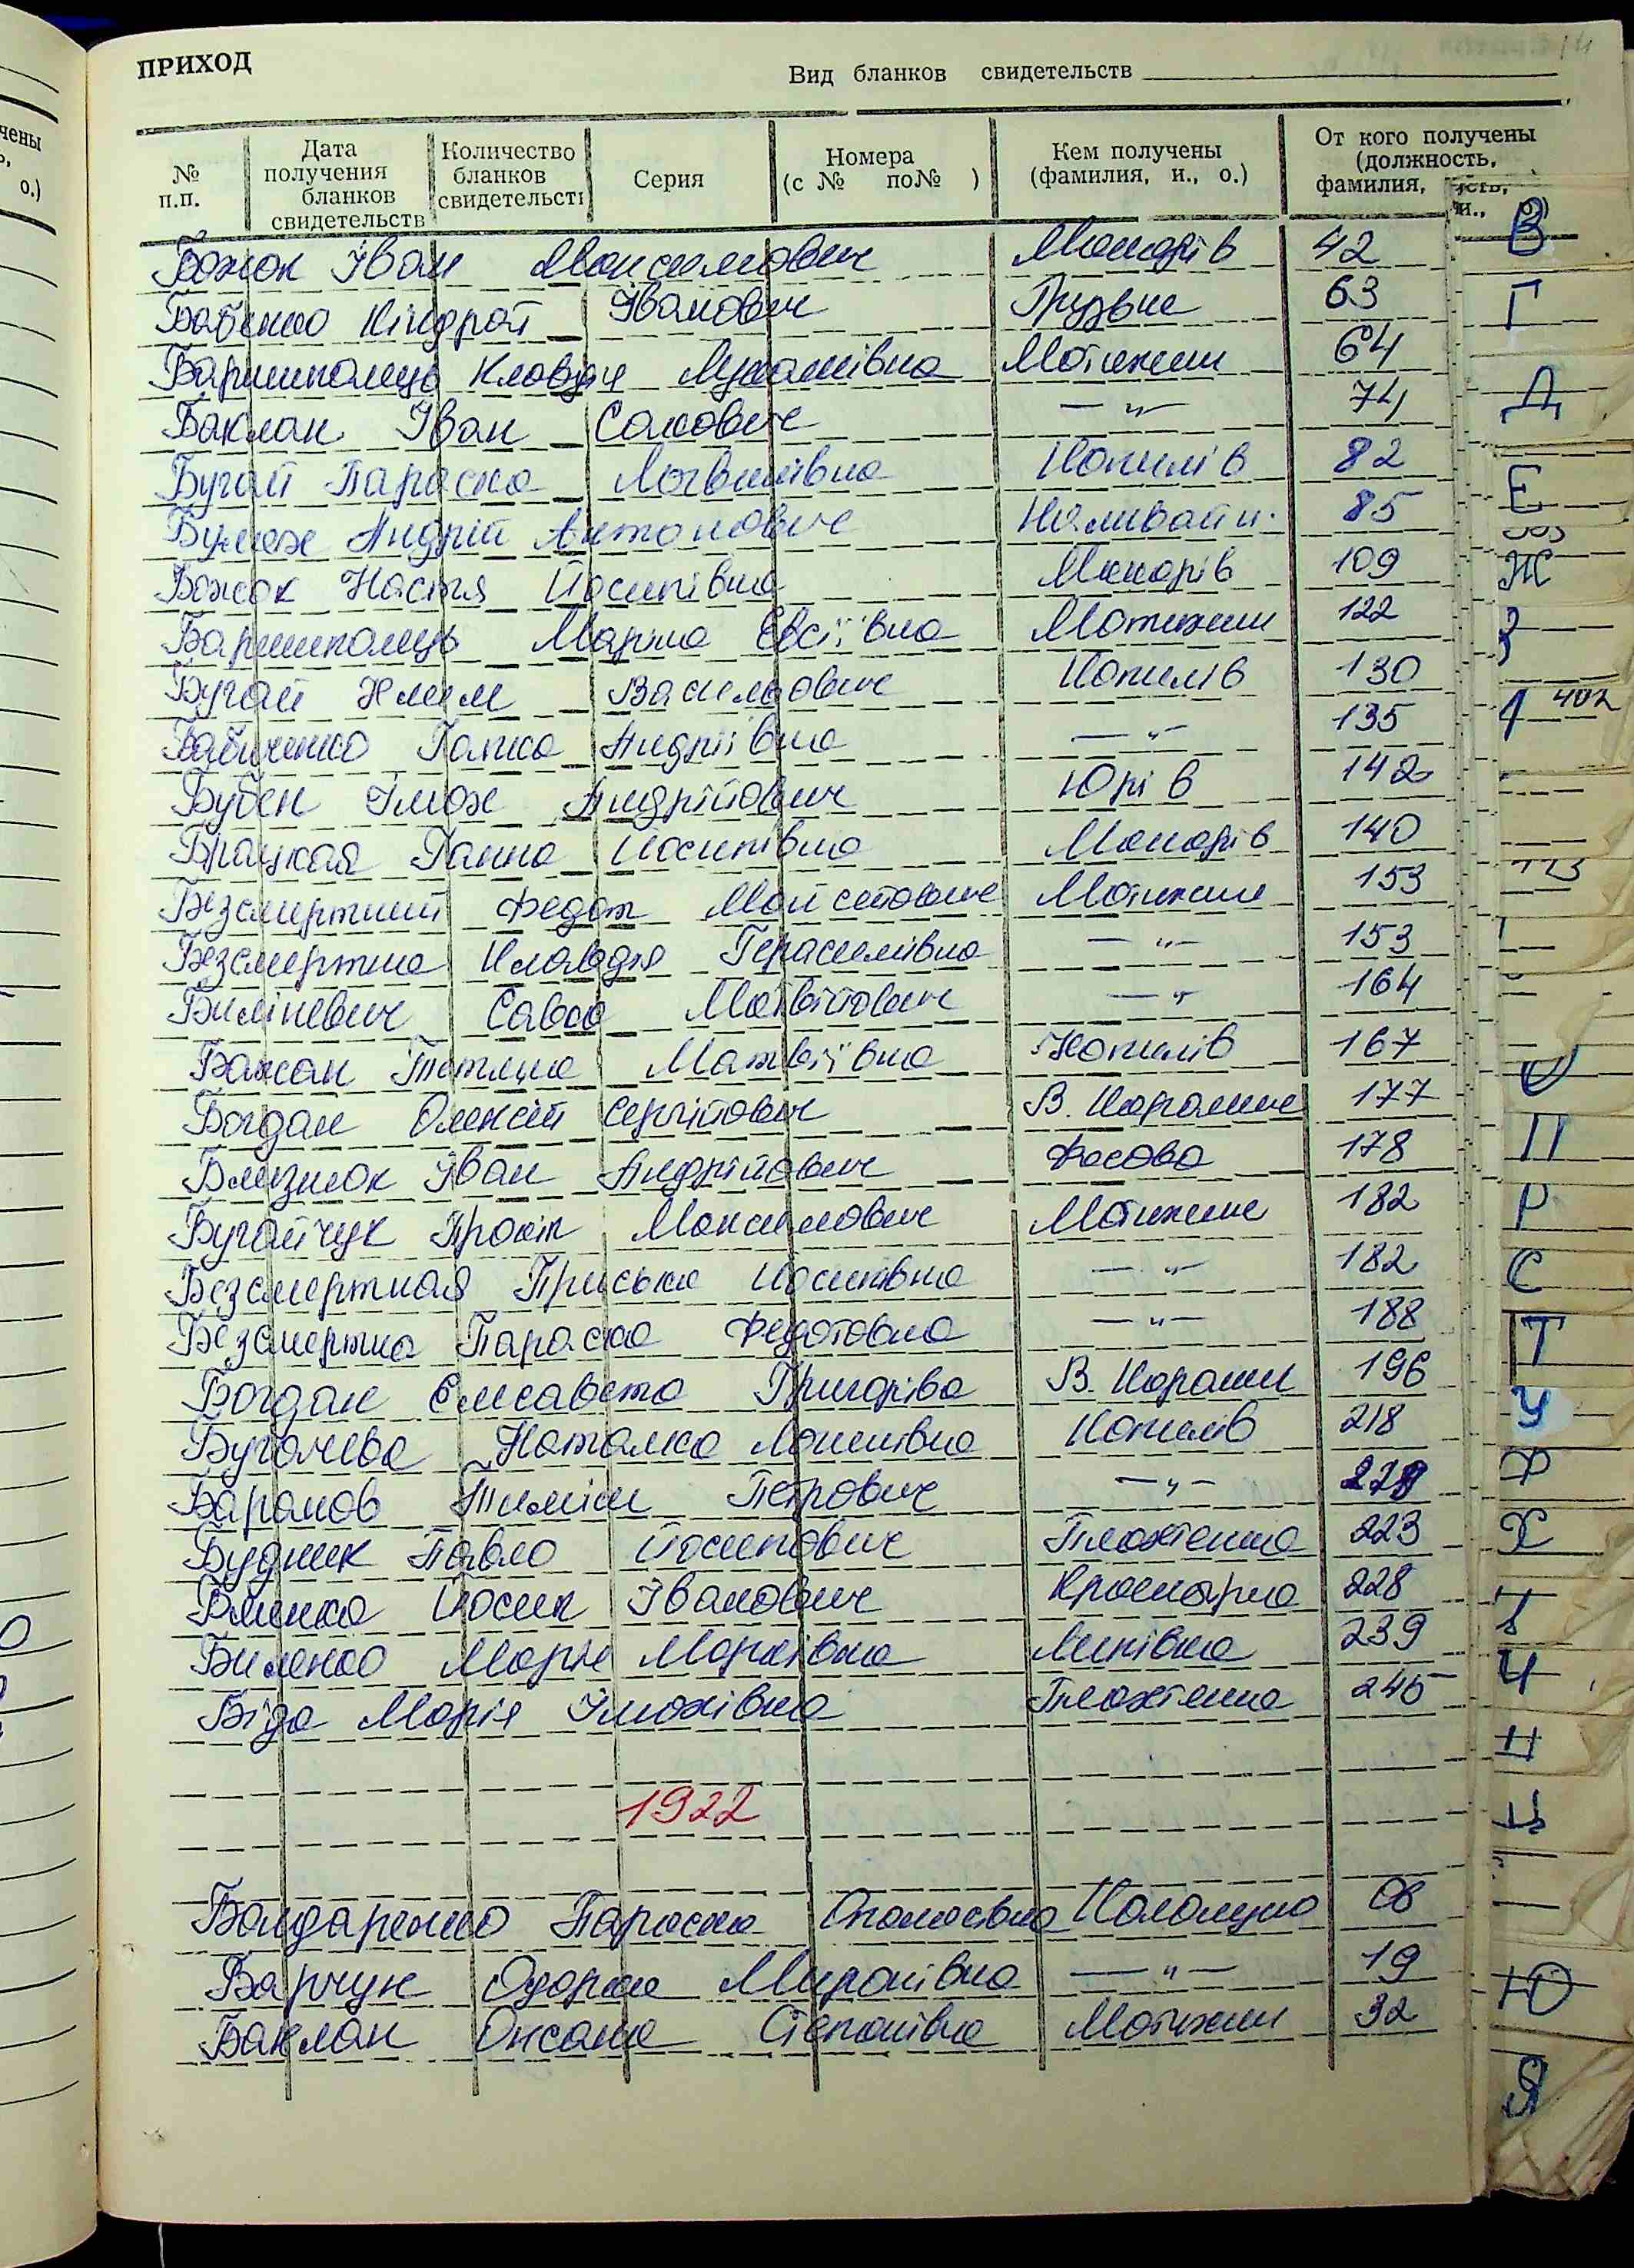 ПРИХОД
Вид бланков свидетельств
№ п.п.
Дата получения бланков свидетельств
Количество бланков свидетельств
Серия
Номера (с № по№ )
Кем получены (фамилия, и., о.)
От кого получены (должность, фамилия, и.,
Божок Іван Максимович Макарів 42
Бабенко Кіндрат Іванович Грузьке 63
Баришполець Клавдія Лукашівна Мотижин 64
Баклан Іван Савович —"— 74
Бугай Параска Логвинівна Копилів 82
Андрій Антонович 85
Божок Настя Йосипівна Макарів 109
Баришполець Марина Євсіївна Мотижин 122
Бугай Клим Васильович Копилів 130
Бабиченко Ганна Андріївна —"— 135
Бубен Ілюх Андрійович Юрів 142
Брацкая Ганна Йосипівна Макарів 140
Безсмертний Федот Мойсейович Мотижин 153
Безсмертна Клавдія Герасимівна —"— 153
Савва Матвійович —"— 164
Бажан Тетяна Матвіївна Копилів 167
Богдан Олексій Сергійович В. Карашин 177
Близнюк Іван Андрійович Фасова 178
Бугайчук Прокіп Максимович Мотижин 182
Безсмертная Приська Йосипівна —"— 182
Безсмертна Параска Федотовна —"— 188
Богдан Єлисавета Григорівна В. Карашин 196
Наталка Копилів 218
Баранов Петрович —"—
Будник Павло Йосипович Плахтянка 223
Йосип Іванович 228
Биленко Марія Марківна Липівка 239
Біда Марія Плахтянка 245
1922
Бондаренко Параска Опанасівна Колонщина 08
Барчук Одарка Миронівна —"— 19
Баклан Оксана Степанівна Мотижин 32
В
Г
Д
Е
Ж
З
І
О
П
Р
С
Т
У
Ф
Х
Ч
Ц
Ю
Я